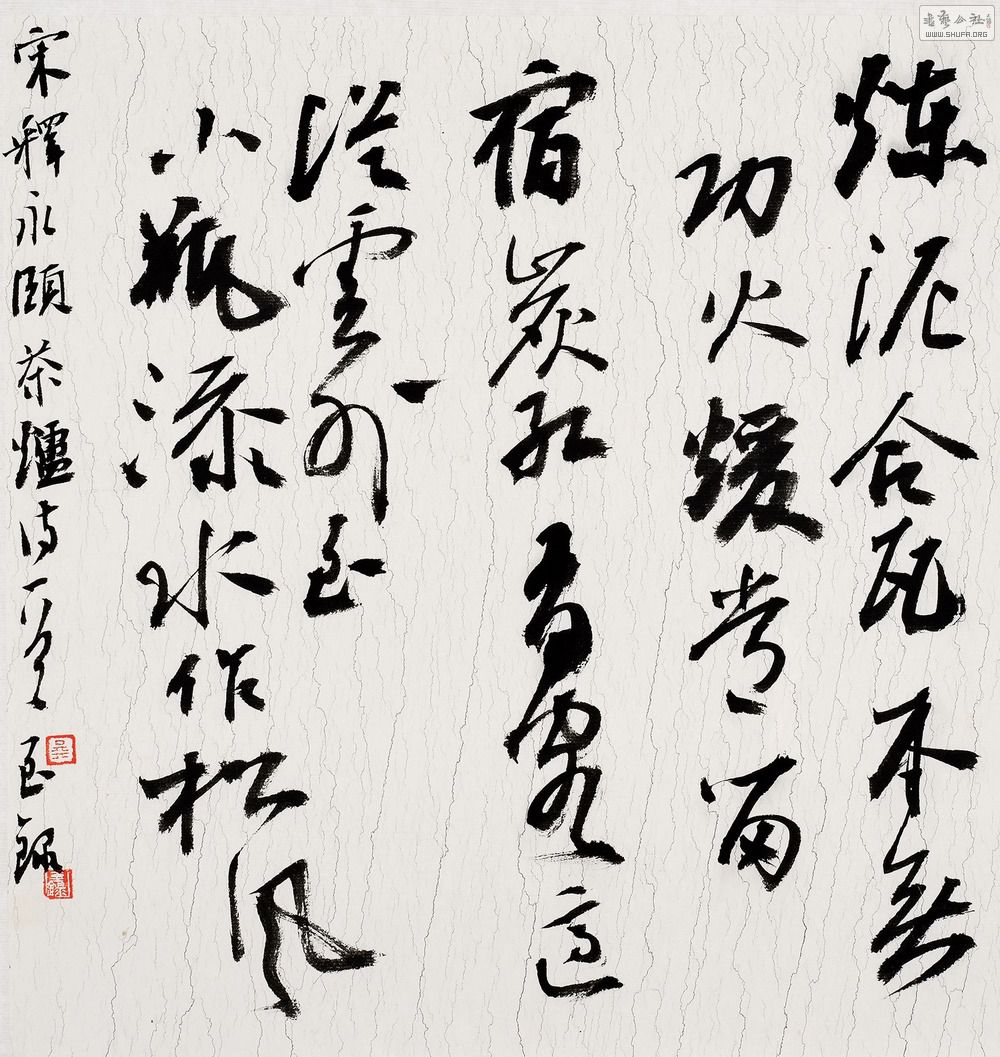 煉泥合瓦本無
功火煖常留
宿炭紅有客適
從雲外至
小瓶添水作松風
宋釋永頤茶爐詩一首 至錄
書藝公社
WWW.SHUFA.ORG